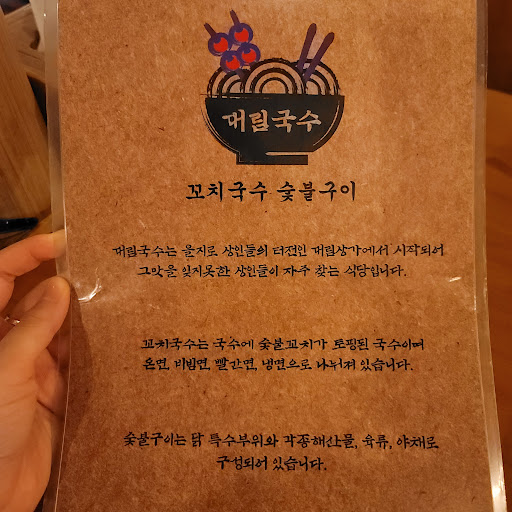 대림국수
꼬치국수 숯불구이
대림국수는 을지로 상인들의 터전인 대림상가에서 시작되어
그맛을 잊지못한 상인들이 자주 찾는 식당입니다.
꼬치국수는 국수에 숯불꼬치가 토핑된 국수이며
온면, 비빔면, 빨간면, 냉면으로 나뉘져 있습니다.
숯불구이는 닭 특수부위와 각종해산물, 육류, 야채로
구성되어 있습니다.